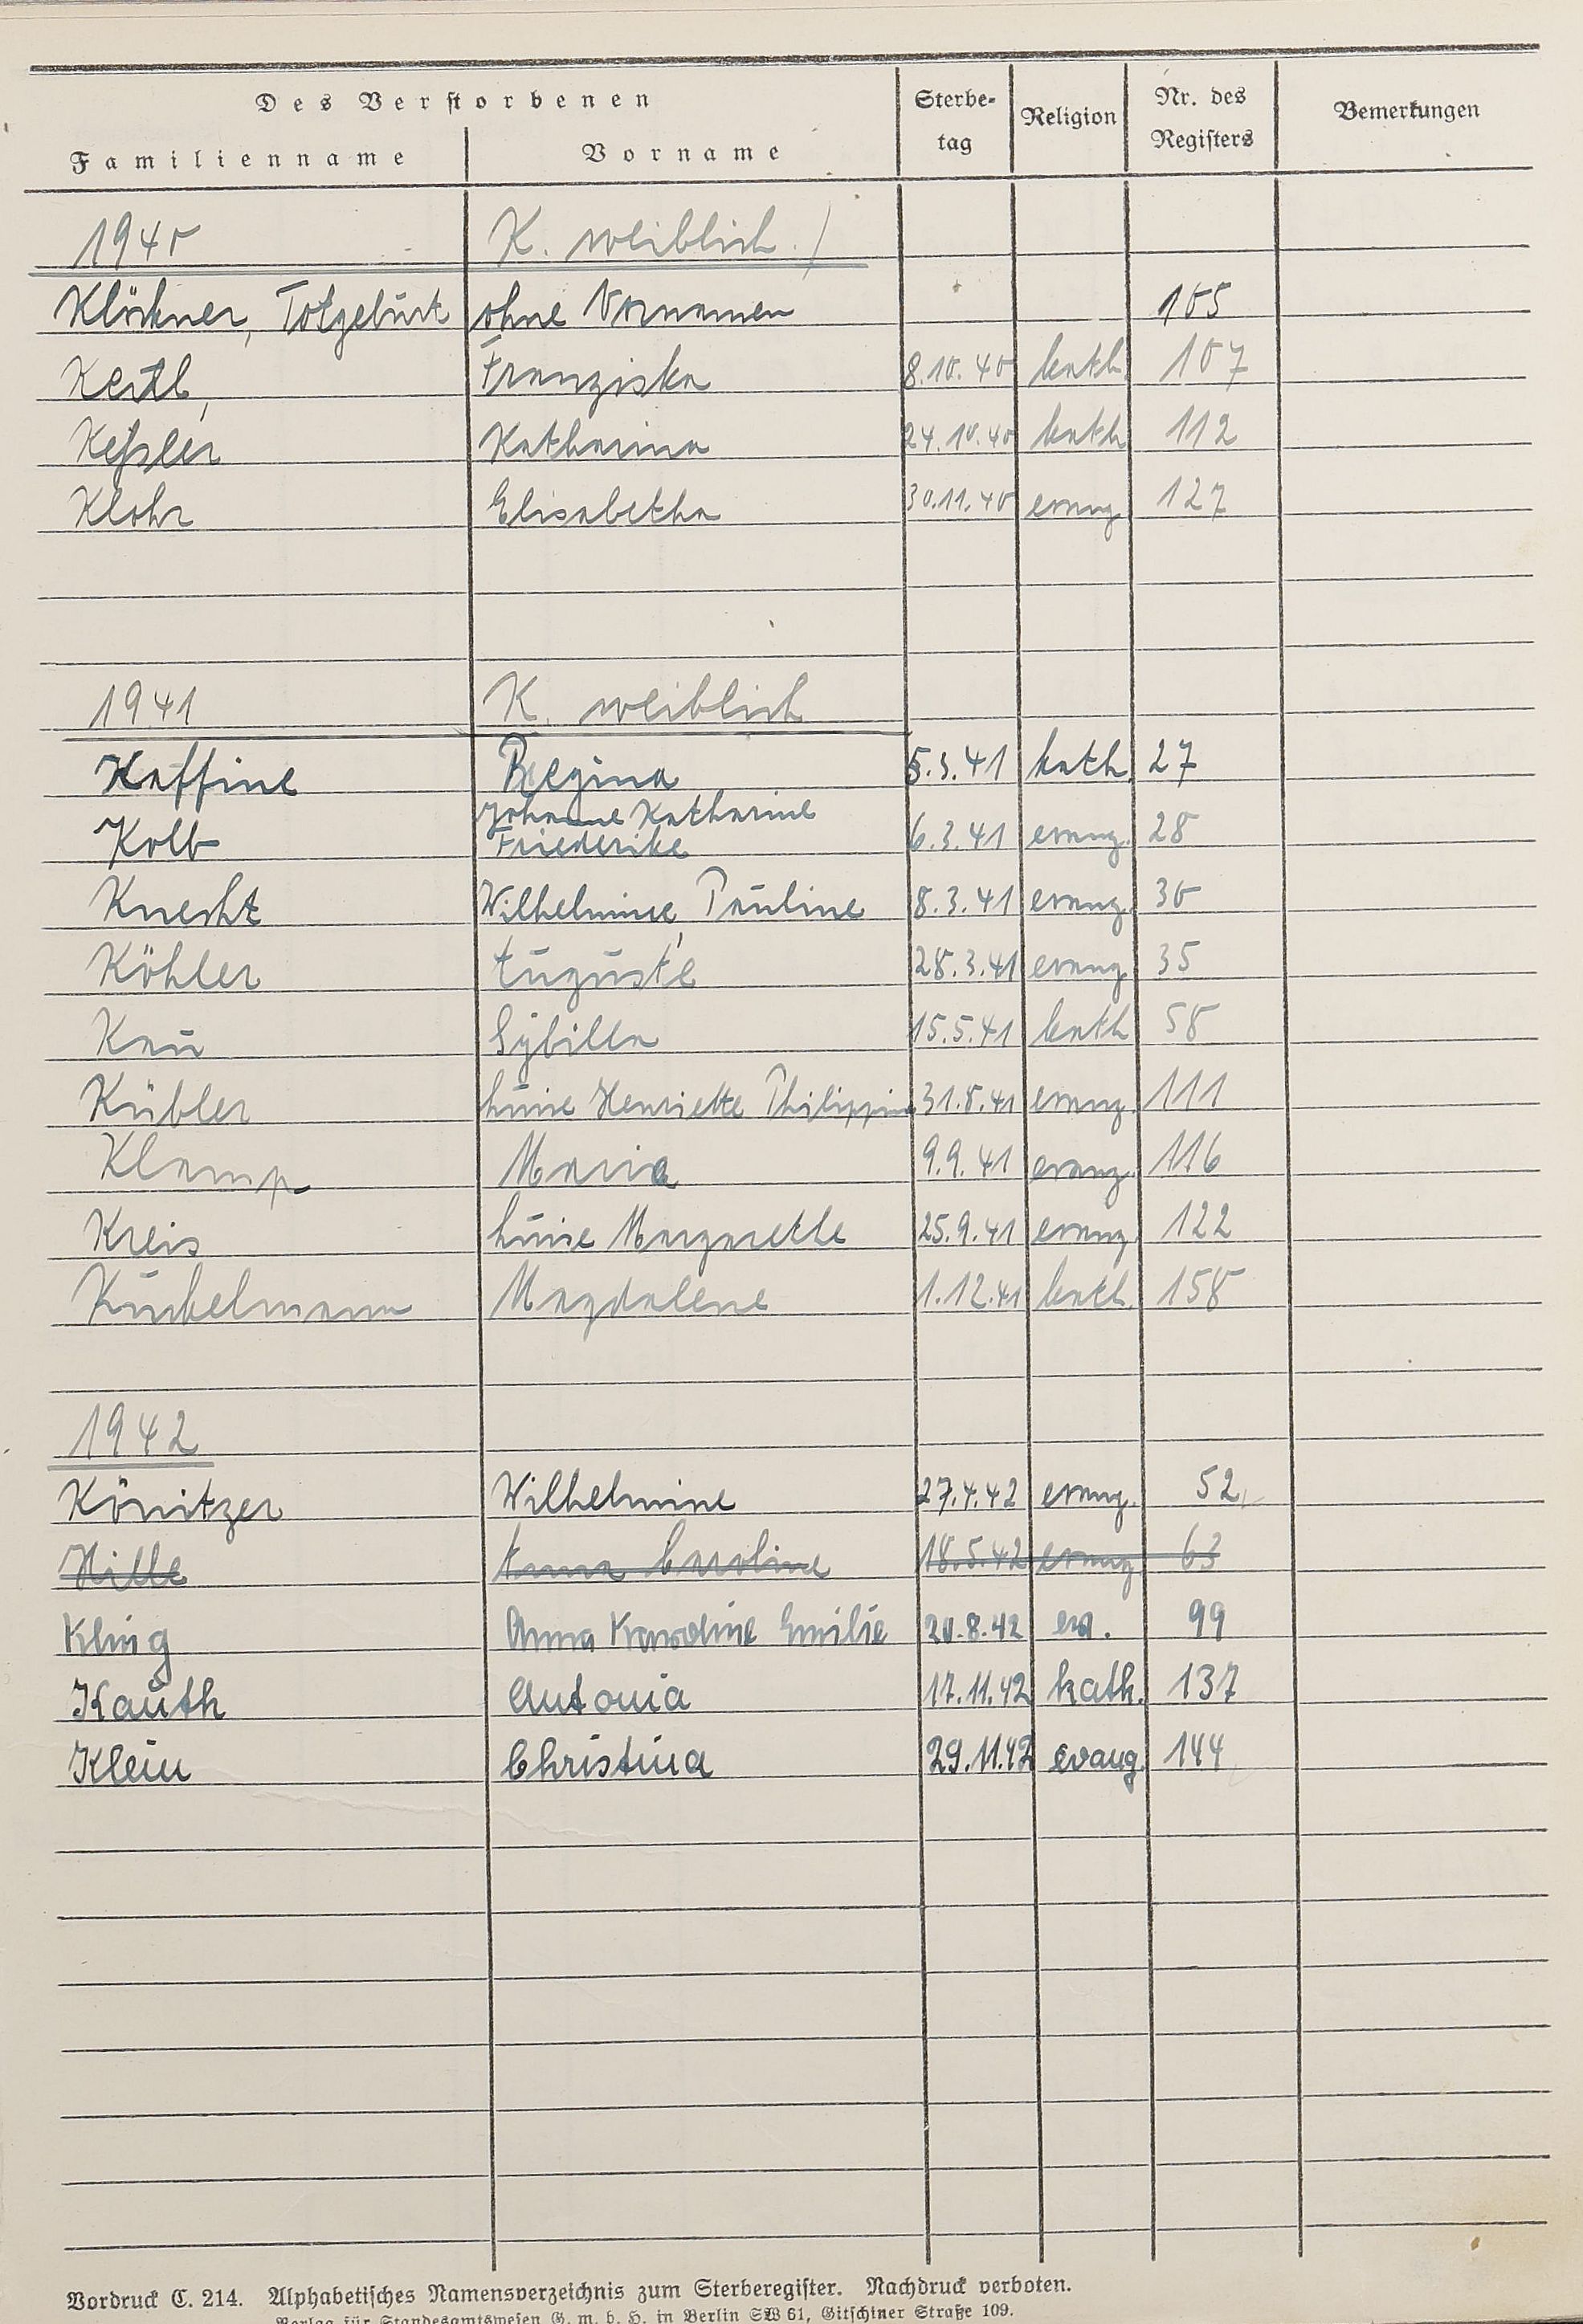 Des Verstorbenen
Familienname Vorname Sterbe-tag Religion Nr. des Registers Bemerkungen
1940 K. weiblich.
Klöckner, Totgeburt ohne Vornamen 105
Kertl, Franziska 8.10.40 kath. 107
Keßler Katharina 24.10.40 kath 112
Klohr Elisabetha 30.11.40 evang 127
1941 K. weiblich
Kaffine Regina 5.3.41 kath. 27
Kolb Johanne Katharine Friederike 6.3.41 evang. 28
Knecht Wilhelmine, Pauline 8.3.41 evang. 30
Köhler Auguste 28.3.41 evang. 35
Kau Sybilla 15.5.41 kath 58
Kübler Luise Henriette Philippine 31.8.41 evang. 111
Klamp Maria 9.9.41 evang. 116
Kreis Luise Margarethe 25.9.41 evang. 122
Kunkelmann Magdalene 1.12.41 kath. 158
1942
Könitzer Wilhelmine 27.4.42 evang. 52
Hille Anna Caroline 18.5.42 evang 63
Kling Anna Karoline Emilie 20.8.42 ev. 99
Kauth Antonia 17.11.42 kath. 137
Klein Christina 29.11.42 evang. 144
Vordruck C. 214. Alphabetisches Namensverzeichnis zum Sterberegister. Nachdruck verboten.
Verlag für Standesamtswesen G. m. b. H. in Berlin SW 61, Gitschiner Straße 109.